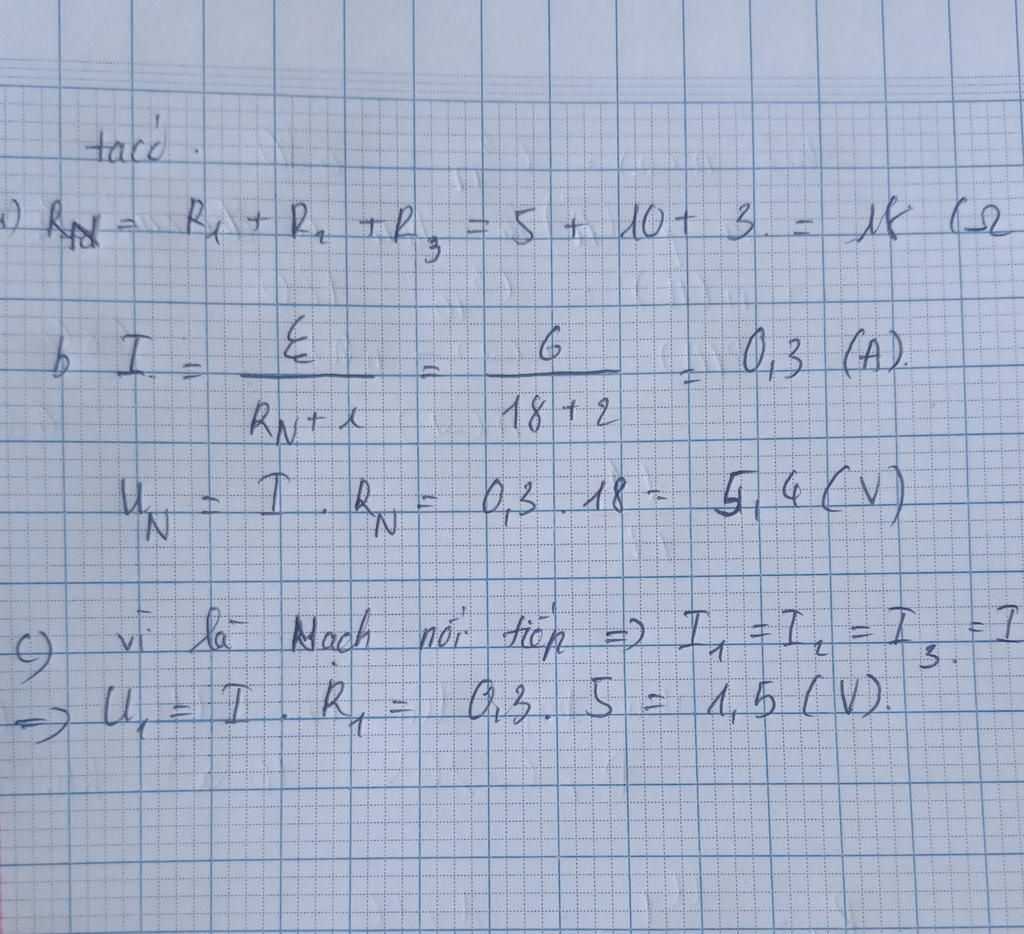 ta có.
a) R_N = R_1 + R_2 + R_3 = 5 + 10 + 3. = 18 (Ω
b I. = ℰ / (R_N + r) = 6 / (18 + 2) = 0,3 (A).
U_N = I . R_N = 0,3 . 18 = 5,4 (V)
c) vì là Mạch nối tiếp => I_1 = I_2 = I_3. = I
=> U_1 = I . R_1 = 0,3 . 5 = 1,5 (V).